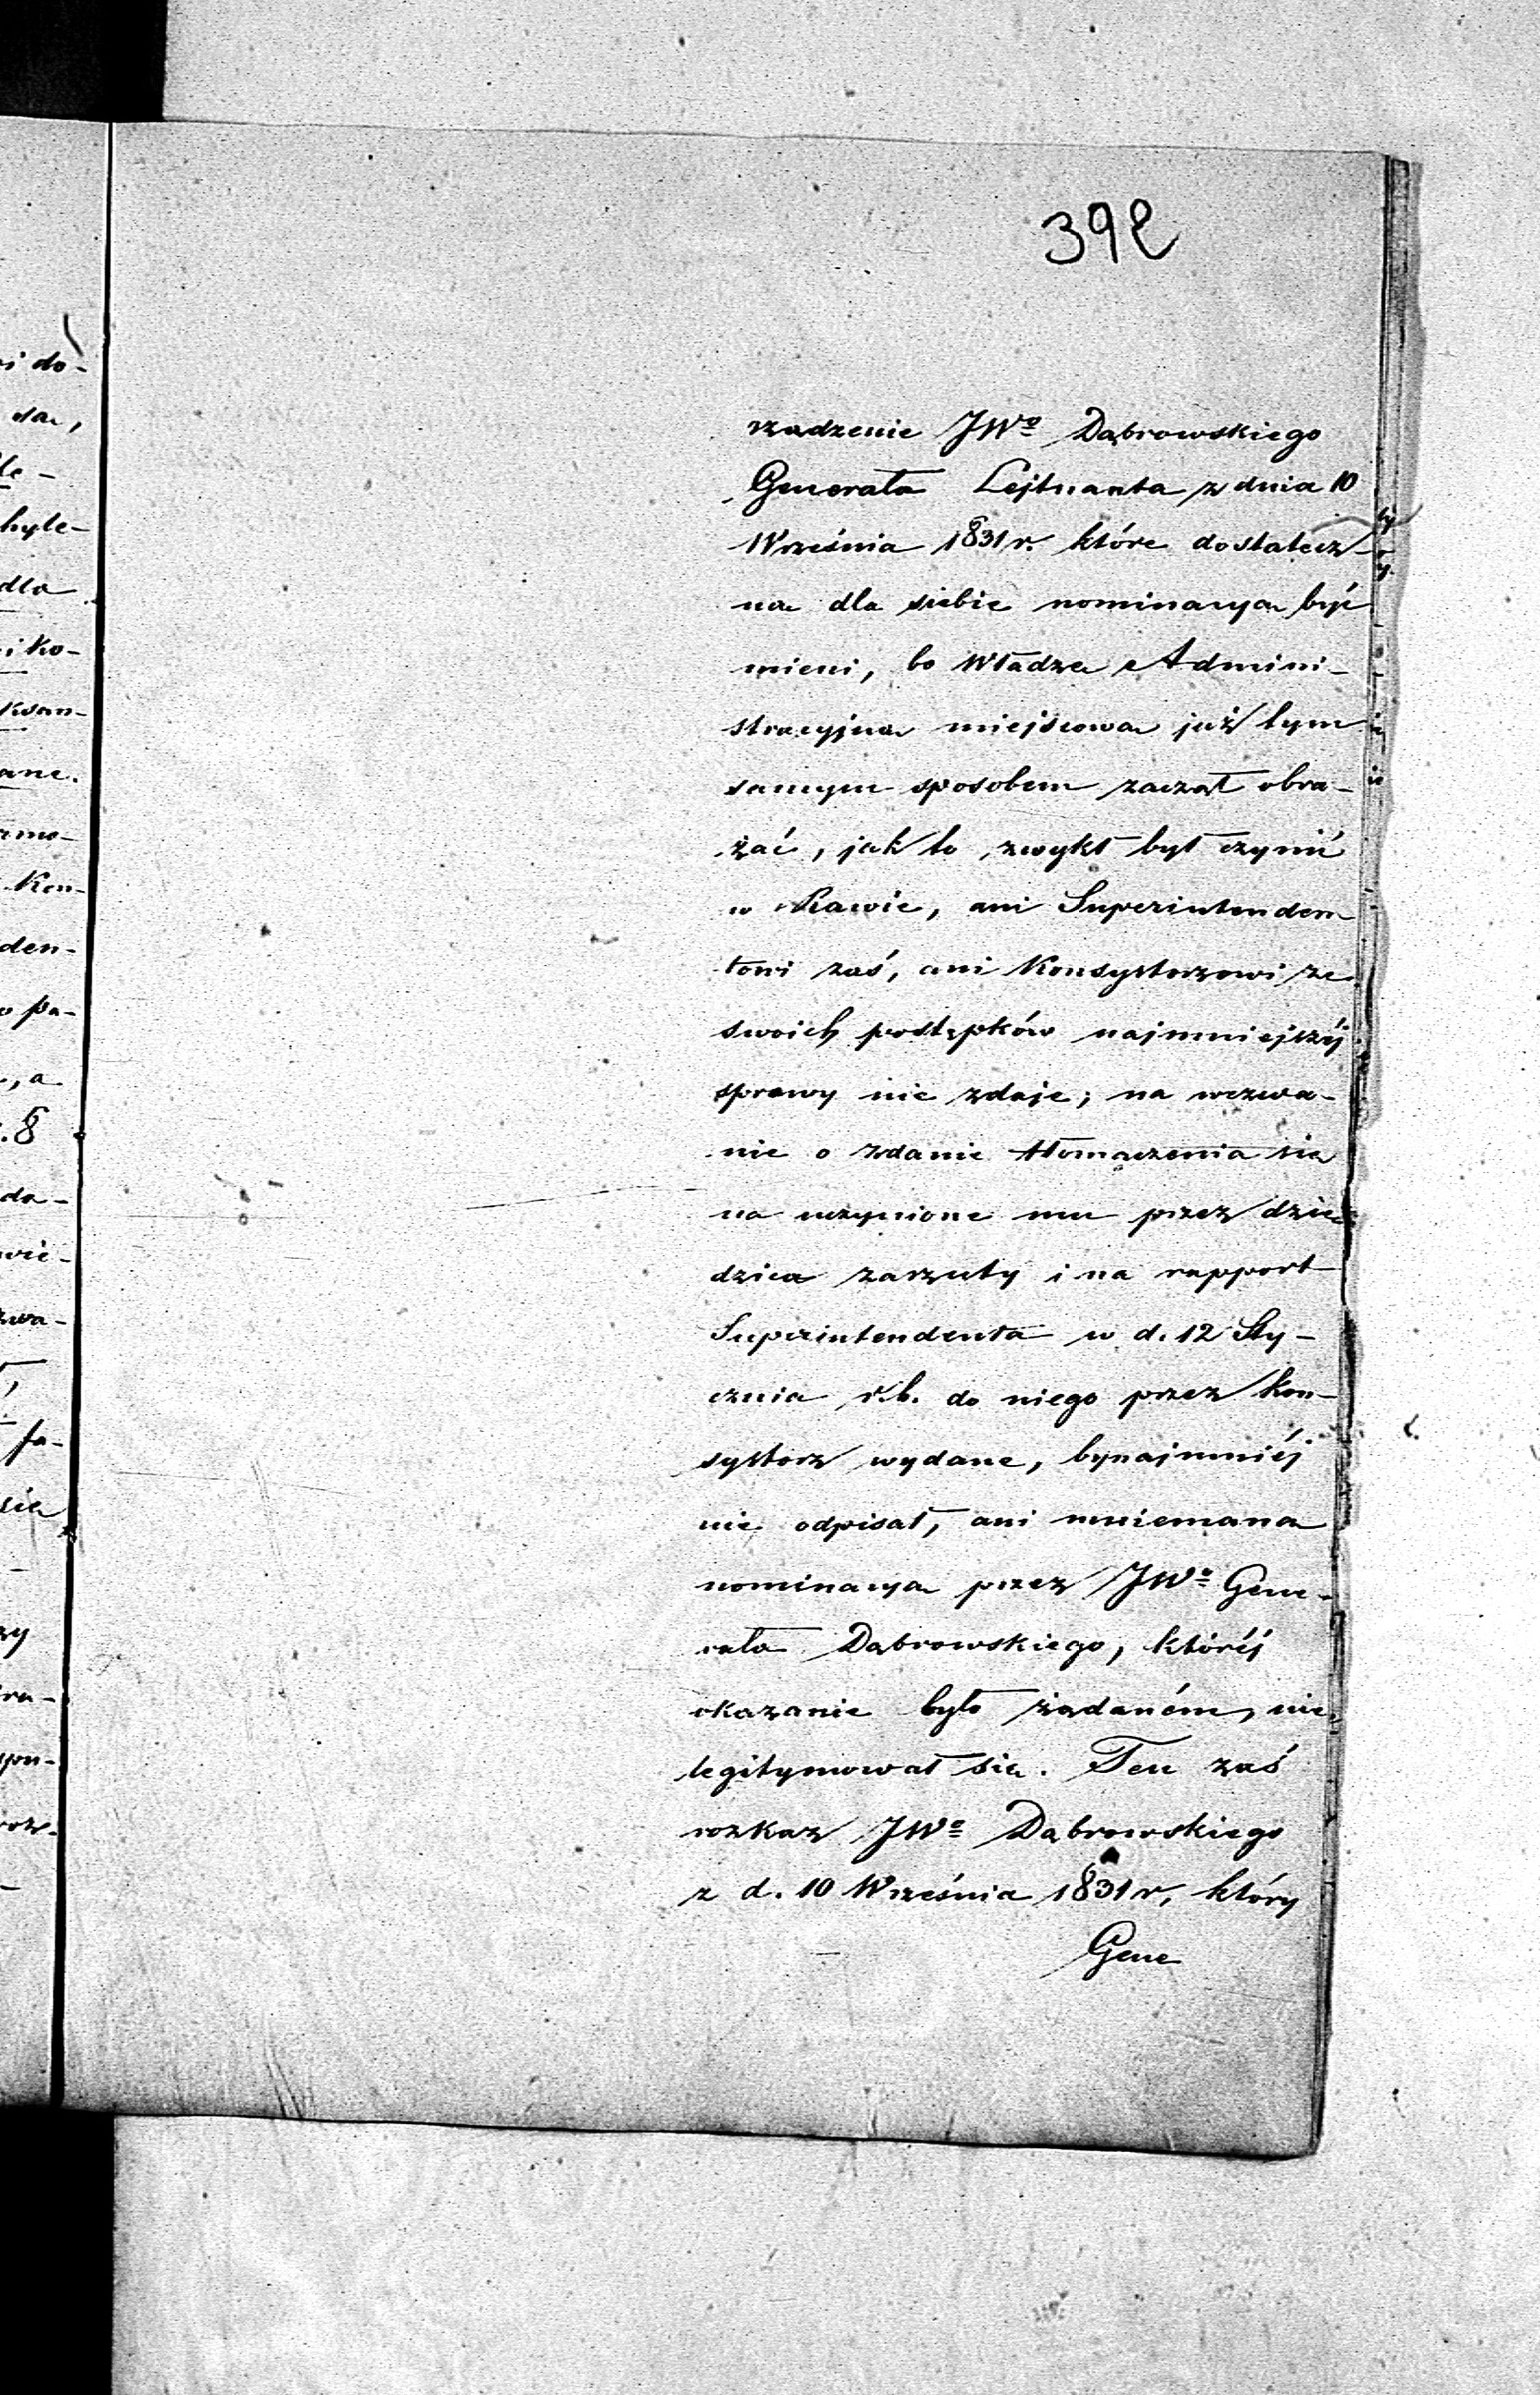 392
rządzenie JWº Dąbrowskiego
Generała Lejtnanta z dnia 10
Września 1831 r. które dostatecz-
ną dla siebie nominacyą być
mieni, bo Władzę Admini-
stracyjną miejscową już tym
samym sposobem zaczął obra-
żać, jak to zwykł był czynić
w Rawie, ani Superintenden
towi zaś, ani Konsystorzowi ze
swoich postępków najmniejszéj
sprawy nie zdaje; na wezwa-
nie o zdanie tłomaczenia się
na uczynione mu przez dzie-
dzica zarzuty i na rapport
Superintendenta w d. 12 Sty-
cznia r. b. do niego przez Kon-
systorz wydane, bynajmniéj
nie odpisał, ani mniemaną
nominacyą przez JWº Gene-
rała Dąbrowskiego, któréj
okazanie było żądaném, nie
legitymował się. Ten zaś
rozkaz JWº Dąbrowskiego
z d. 10 Września 1831 r, który
Gene